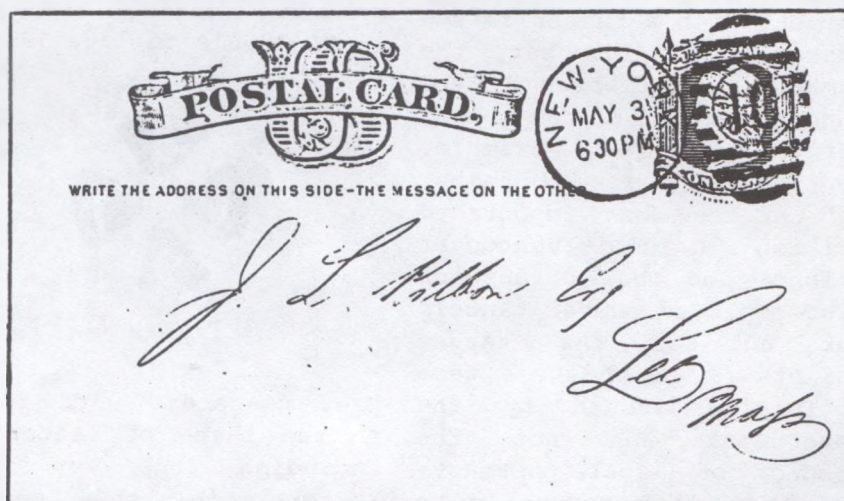 US
POSTAL CARD.
NEW-YORK
MAY 3
630PM
10
WRITE THE ADDRESS ON THIS SIDE-THE MESSAGE ON THE OTHER
J. L. Kilbon Esq
Lee
Mass.